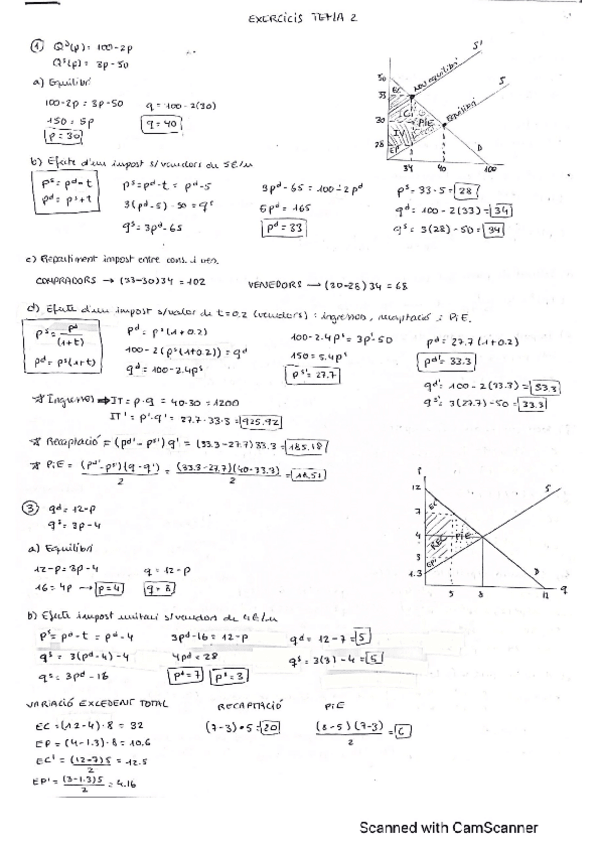 EXERCICIS TEMA 2
① Qᴰ(p) = 100-2p
Qˢ(p) = 3p-50
a) Equilibri
100-2p = 3p-50 q = 100-2(30)
150 = 5p q = 40
p = 30
S'
S
50
EC
NOU EQUILIBRI
33
C
30
PiE
EQUILIBRI
IV
28
EP
D
34 40 100
b) Efecte d'un impost s/venedors de 5€/u
pˢ = pᵈ-t pˢ = pᵈ-t = pᵈ-5 3pᵈ-65 = 100-2pᵈ pˢ = 33-5 = 28
pᵈ = pˢ+t 3(pᵈ-5)-50 = qˢ 5pᵈ = 165 qᵈ = 100-2(33) = 34
qˢ = 3pᵈ-65 pᵈ = 33 qˢ = 3(28)-50 = 34
c) Repartiment impost entre cons. i ven.
COMPRADORS → (33-30)34 = 102 VENEDORS → (30-28)34 = 68
d) Efecte d'un impost s/valor de t=0.2 (venedors): ingressos, recaptació i PiE.
pˢ = pᵈ/(1+t) pᵈ = pˢ(1+0.2) 100-2.4pˢ = 3pˢ-50 pᵈ = 27.7(1+0.2)
pᵈ = pˢ(1+t) 100-2(pˢ(1+0.2)) = qᵈ 150 = 5.4pˢ pᵈ' = 33.3
qᵈ = 100-2.4pˢ pˢ' = 27.7 qᵈ' = 100-2(33.3) = 33.3
qˢ' = 3(27.7)-50 = 33.3
* Ingressos → IT = p·q = 40·30 = 1200
IT' = p'·q' = 27.7·33.3 = 925.92
* Recaptació = (pᵈ'-pˢ')q' = (33.3-27.7)33.3 = 185.18
* PiE = (pᵈ'-pˢ')(q-q')/2 = (33.3-27.7)(40-33.3)/2 = 18.51
③ qᵈ = 12-p
qˢ = 3p-4
a) Equilibri
12-p = 3p-4 q = 12-p
16 = 4p → p=4 q=8
P
12
S
EC
7
4
REC PiE
3
EP'
1.3
D
5 8 12 q
b) Efecte impost unitari s/venedors de 4€/u
pˢ = pᵈ-t = pᵈ-4 3pᵈ-16 = 12-p qᵈ = 12-7 = 5
qˢ = 3(pᵈ-4)-4 4pᵈ = 28 qˢ = 3(3)-4 = 5
qˢ = 3pᵈ-16 pᵈ = 7 pˢ = 3
VARIACIÓ EXCEDENT TOTAL RECAPTACIÓ PiE
EC = (12-4)·8 = 32 (7-3)·5 = 20 (8-5)(7-3)/2 = 6
EP = (4-1.3)·8 = 10.6
EC' = (12-7)5/2 = 12.5
EP' = (3-1.3)5/2 = 4.16
Scanned with CamScanner